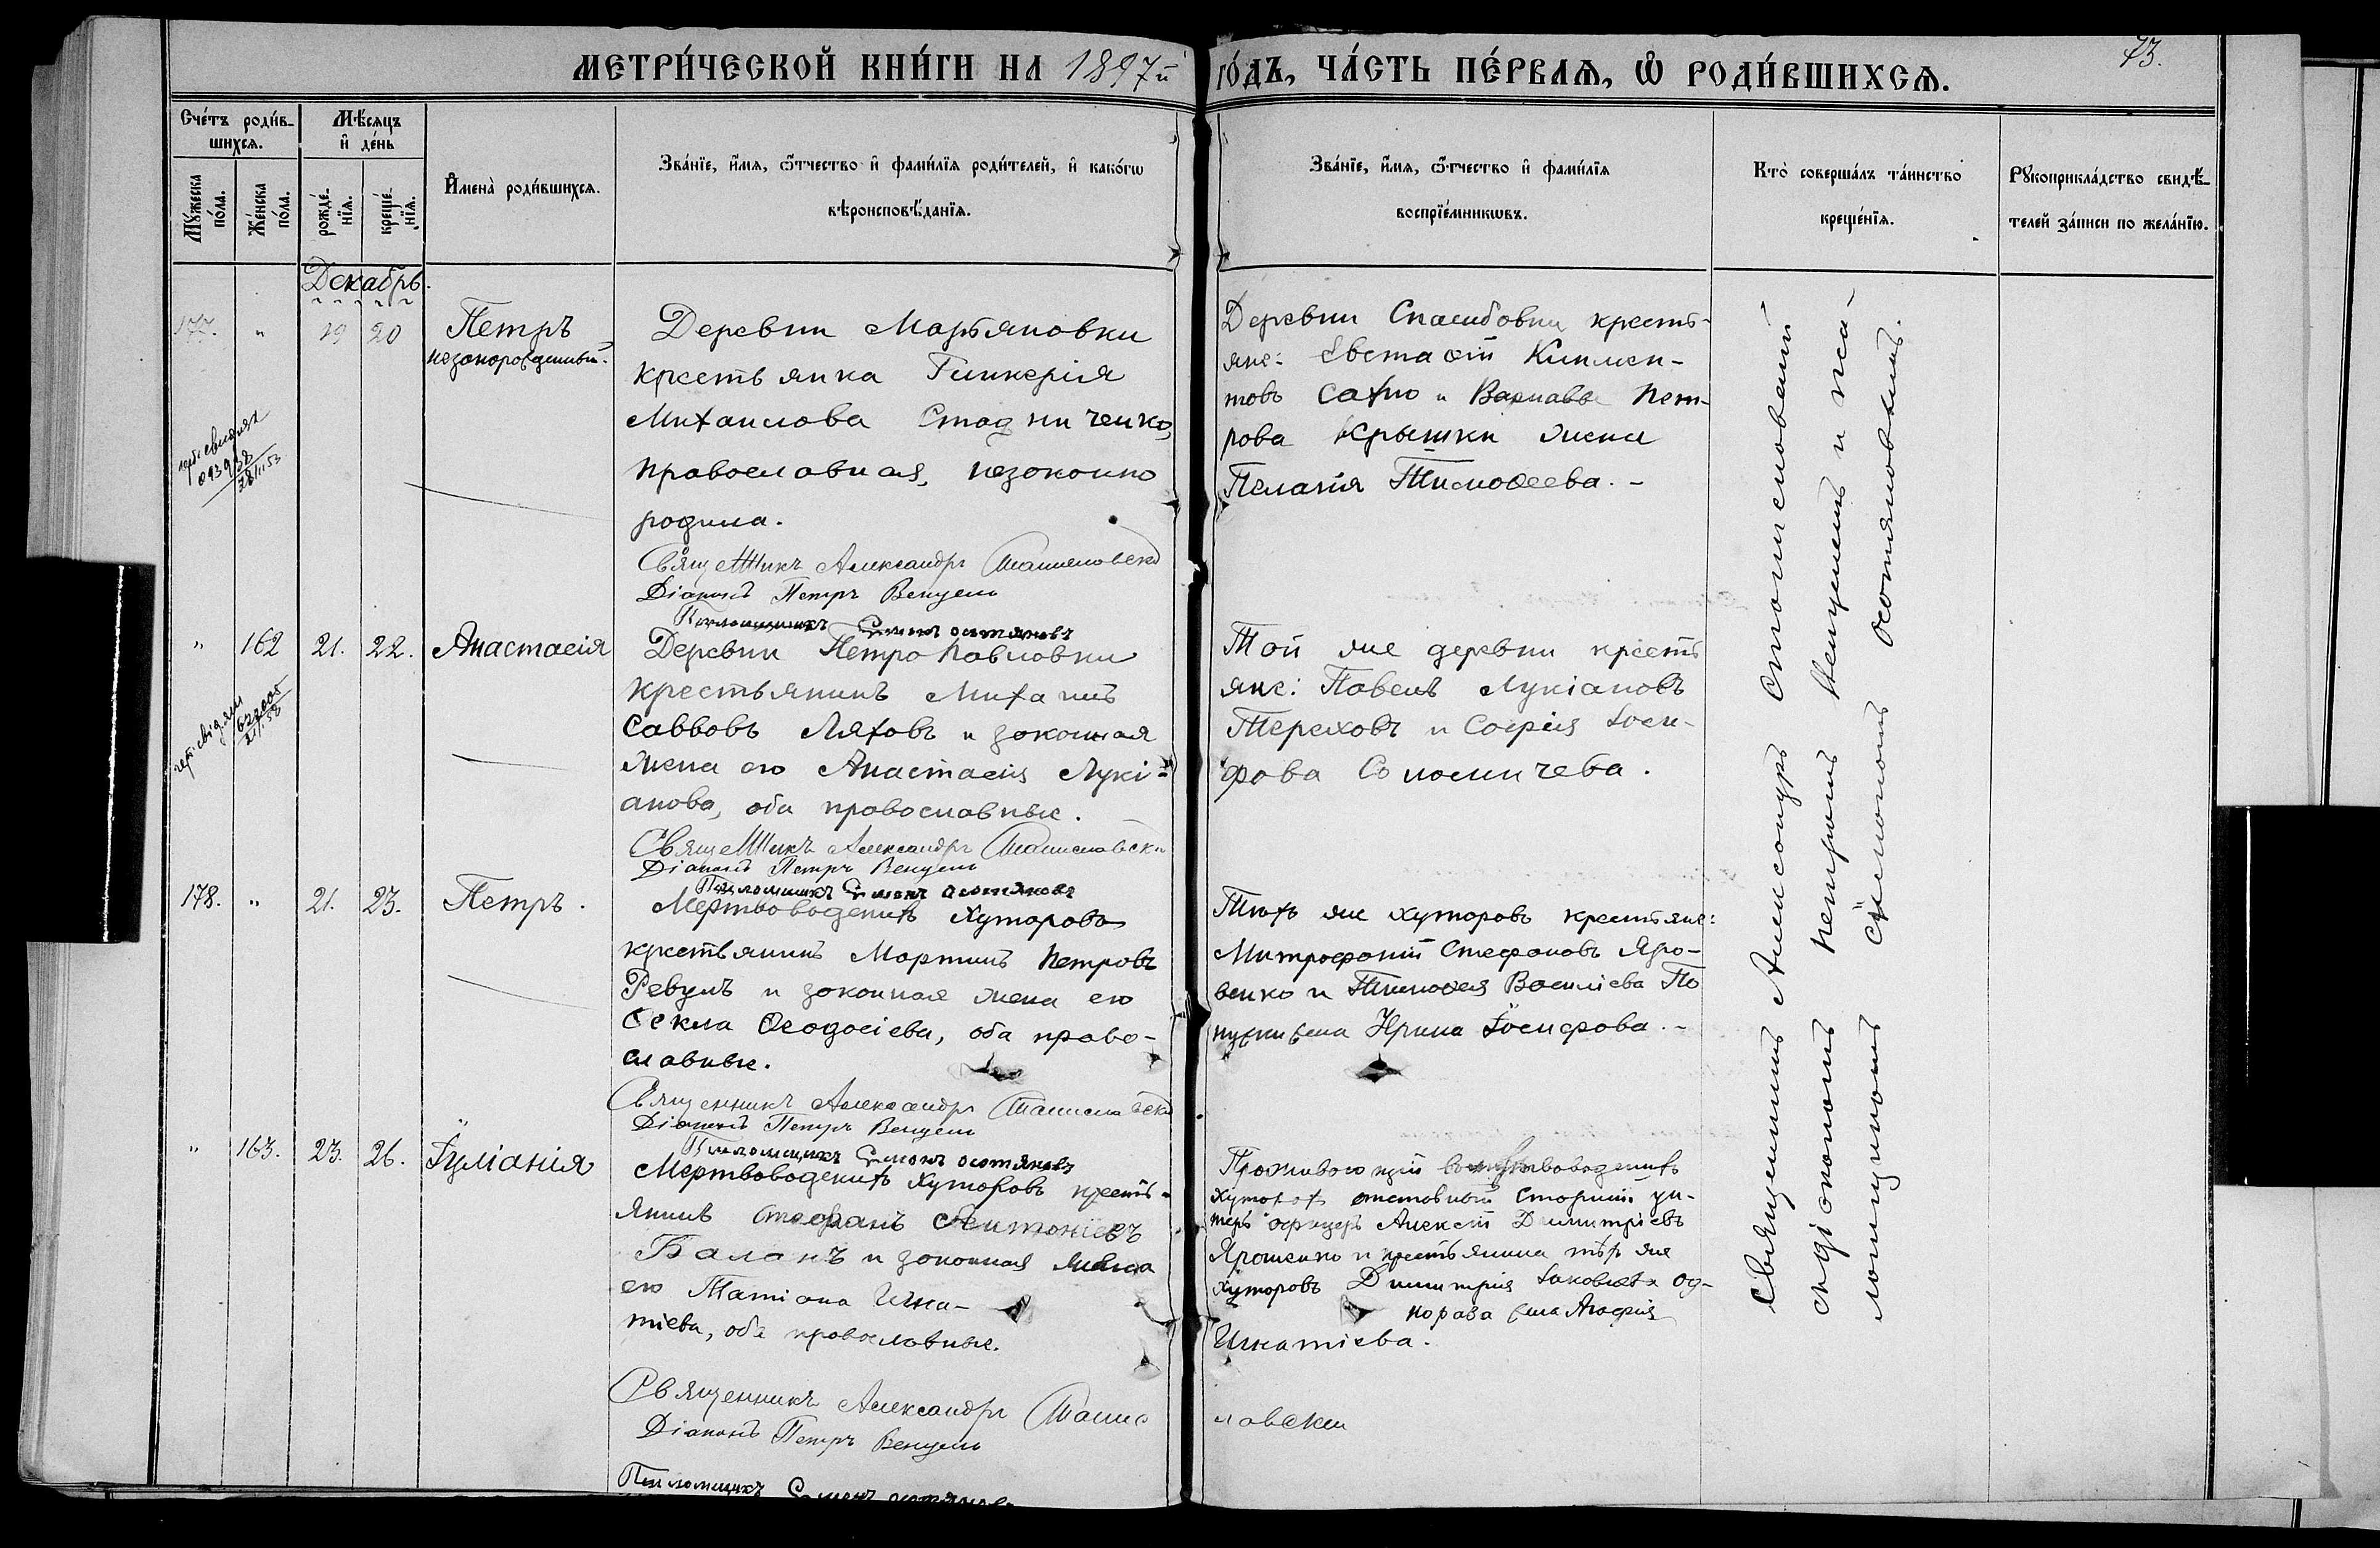 МЕТРИ́ЧЕСКОЙ КНИ́ГИ НА 1897й ГО́ДЪ, ЧА́СТЬ ПЕ́РВАѦ, Ѡ РОДИ́ВШИХСѦ.
73.
Сче́тъ роди́в-
шихсѧ.
Мѣ́сѧцъ
и де́нь
Мꙋ́жеска
по́ла.
Же́нска
по́ла.
рожде́-
нїѧ.
креще́-
нїѧ.
Имена̀ роди́вшихсѧ.
Зва́нїе, и́мѧ, ѻ́тчество и фами́лїѧ роди́телей, и како́гѡ
вѣроисповѣ́данїѧ.
Зва́нїе, и́мѧ, ѻ́тчество и фами́лїѧ
воспрїе́мникѡвъ.
Кто̀ соверша́лъ та́инство
креще́нїѧ.
Рꙋкоприкла́дство свидѣ́-
телей за́писи по жела́нїю.
Декабрь.
177. " 19 20
Петръ
незаконорожденный.
Деревни Мартяновки
крестьянка Гликерія
Михаилова Стадниченко,
православная, незаконно
родила.
Священникъ Александръ Станиславскій
Діаконъ Петръ Венцель
Псаломщикъ Симонъ Остяновъ
Деревни Спасибовки кресть-
яне: Евстафій Климен-
товъ Сахно и Варнавы Пет-
рова Крышки жена
Пелагія Тимоѳеева.-
" 162 21. 22. Анастасія
Деревни Петропавловки
крестьянинъ Михаилъ
Саввовъ Ляховъ и законная
жена его Анастасія Лукі-
анова, оба православные.
Священникъ Александръ Станиславскій
Діаконъ Петръ Венцель
Псаломщикъ Симонъ Остяновъ
Той же деревни кресть
яне: Павелъ Лукіановъ
Тереховъ и Софія Іоси-
фова Соломичева.
178. " 21. 23. Петръ.
Мертвоводскихъ Хуторовъ
крестьянинъ Мартинъ Петровъ
Ревунъ и законная жена его
Ѳекла Ѳеодосіева, оба право-
славные.
Священникъ Александръ Станиславскій
Діаконъ Петръ Венцель
Псаломщикъ Симонъ Остяновъ
Тѣхъ же хуторовъ крестьяне:
Митрофаній Стефановъ Яро-
венко и Тимоѳея Василіева
Ирина Іосифова.-
" 163. 23. 26. Іуліанія
Мертвоводскихъ Хуторовъ кресть-
янинъ Стефанъ Антоніевъ
Баланъ и законная жена
его Татіана Игна-
тіева, оба православные.
Священникъ Александръ Станиславскій
Діаконъ Петръ Венцель
Псаломщикъ Симонъ Остяновъ
Проживающій въ Мертвоводскихъ
Хуторахъ отставный старшій ун-
теръ офицеръ Алексѣй Димитріевъ
Ярошенко и крестьянина тѣхъ же
Хуторовъ Димитрія Іаковлева Од-
жена Агафія
Игнатіева.
Священникъ Александръ Станиславскій
съ діакономъ Петромъ Венцелемъ и пса-
ломщикомъ Симономъ Остяновымъ.